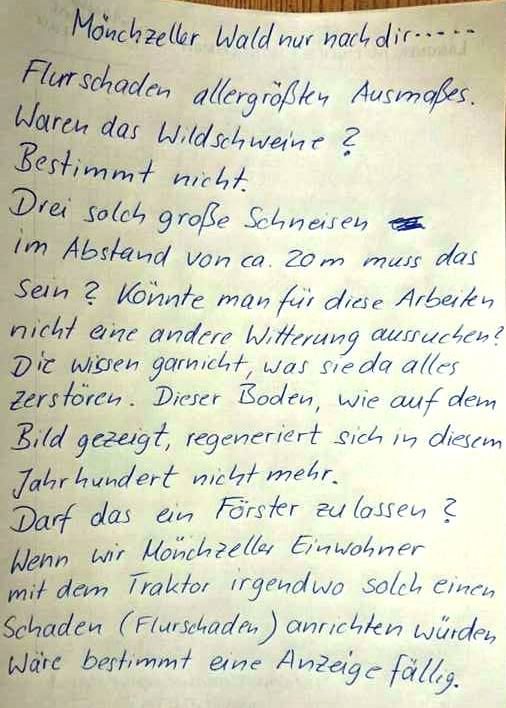 Mönchzeller Wald nur nach dir.....
Flurschaden allergrößten Ausmaßes.
Waren das Wildschweine?
Bestimmt nicht.
Drei solch große Schneisen
im Abstand von ca. 20m muss das
sein? Könnte man für diese Arbeiten
nicht eine andere Witterung aussuchen?
Die wissen garnicht, was sie da alles
zerstören. Dieser Boden, wie auf dem
Bild gezeigt, regeneriert sich in diesem
Jahrhundert nicht mehr.
Darf das ein Förster zulassen?
Wenn wir Mönchzeller Einwohner
mit dem Traktor irgendwo solch einen
Schaden (Flurschaden) anrichten würden
wäre bestimmt eine Anzeige fällig.